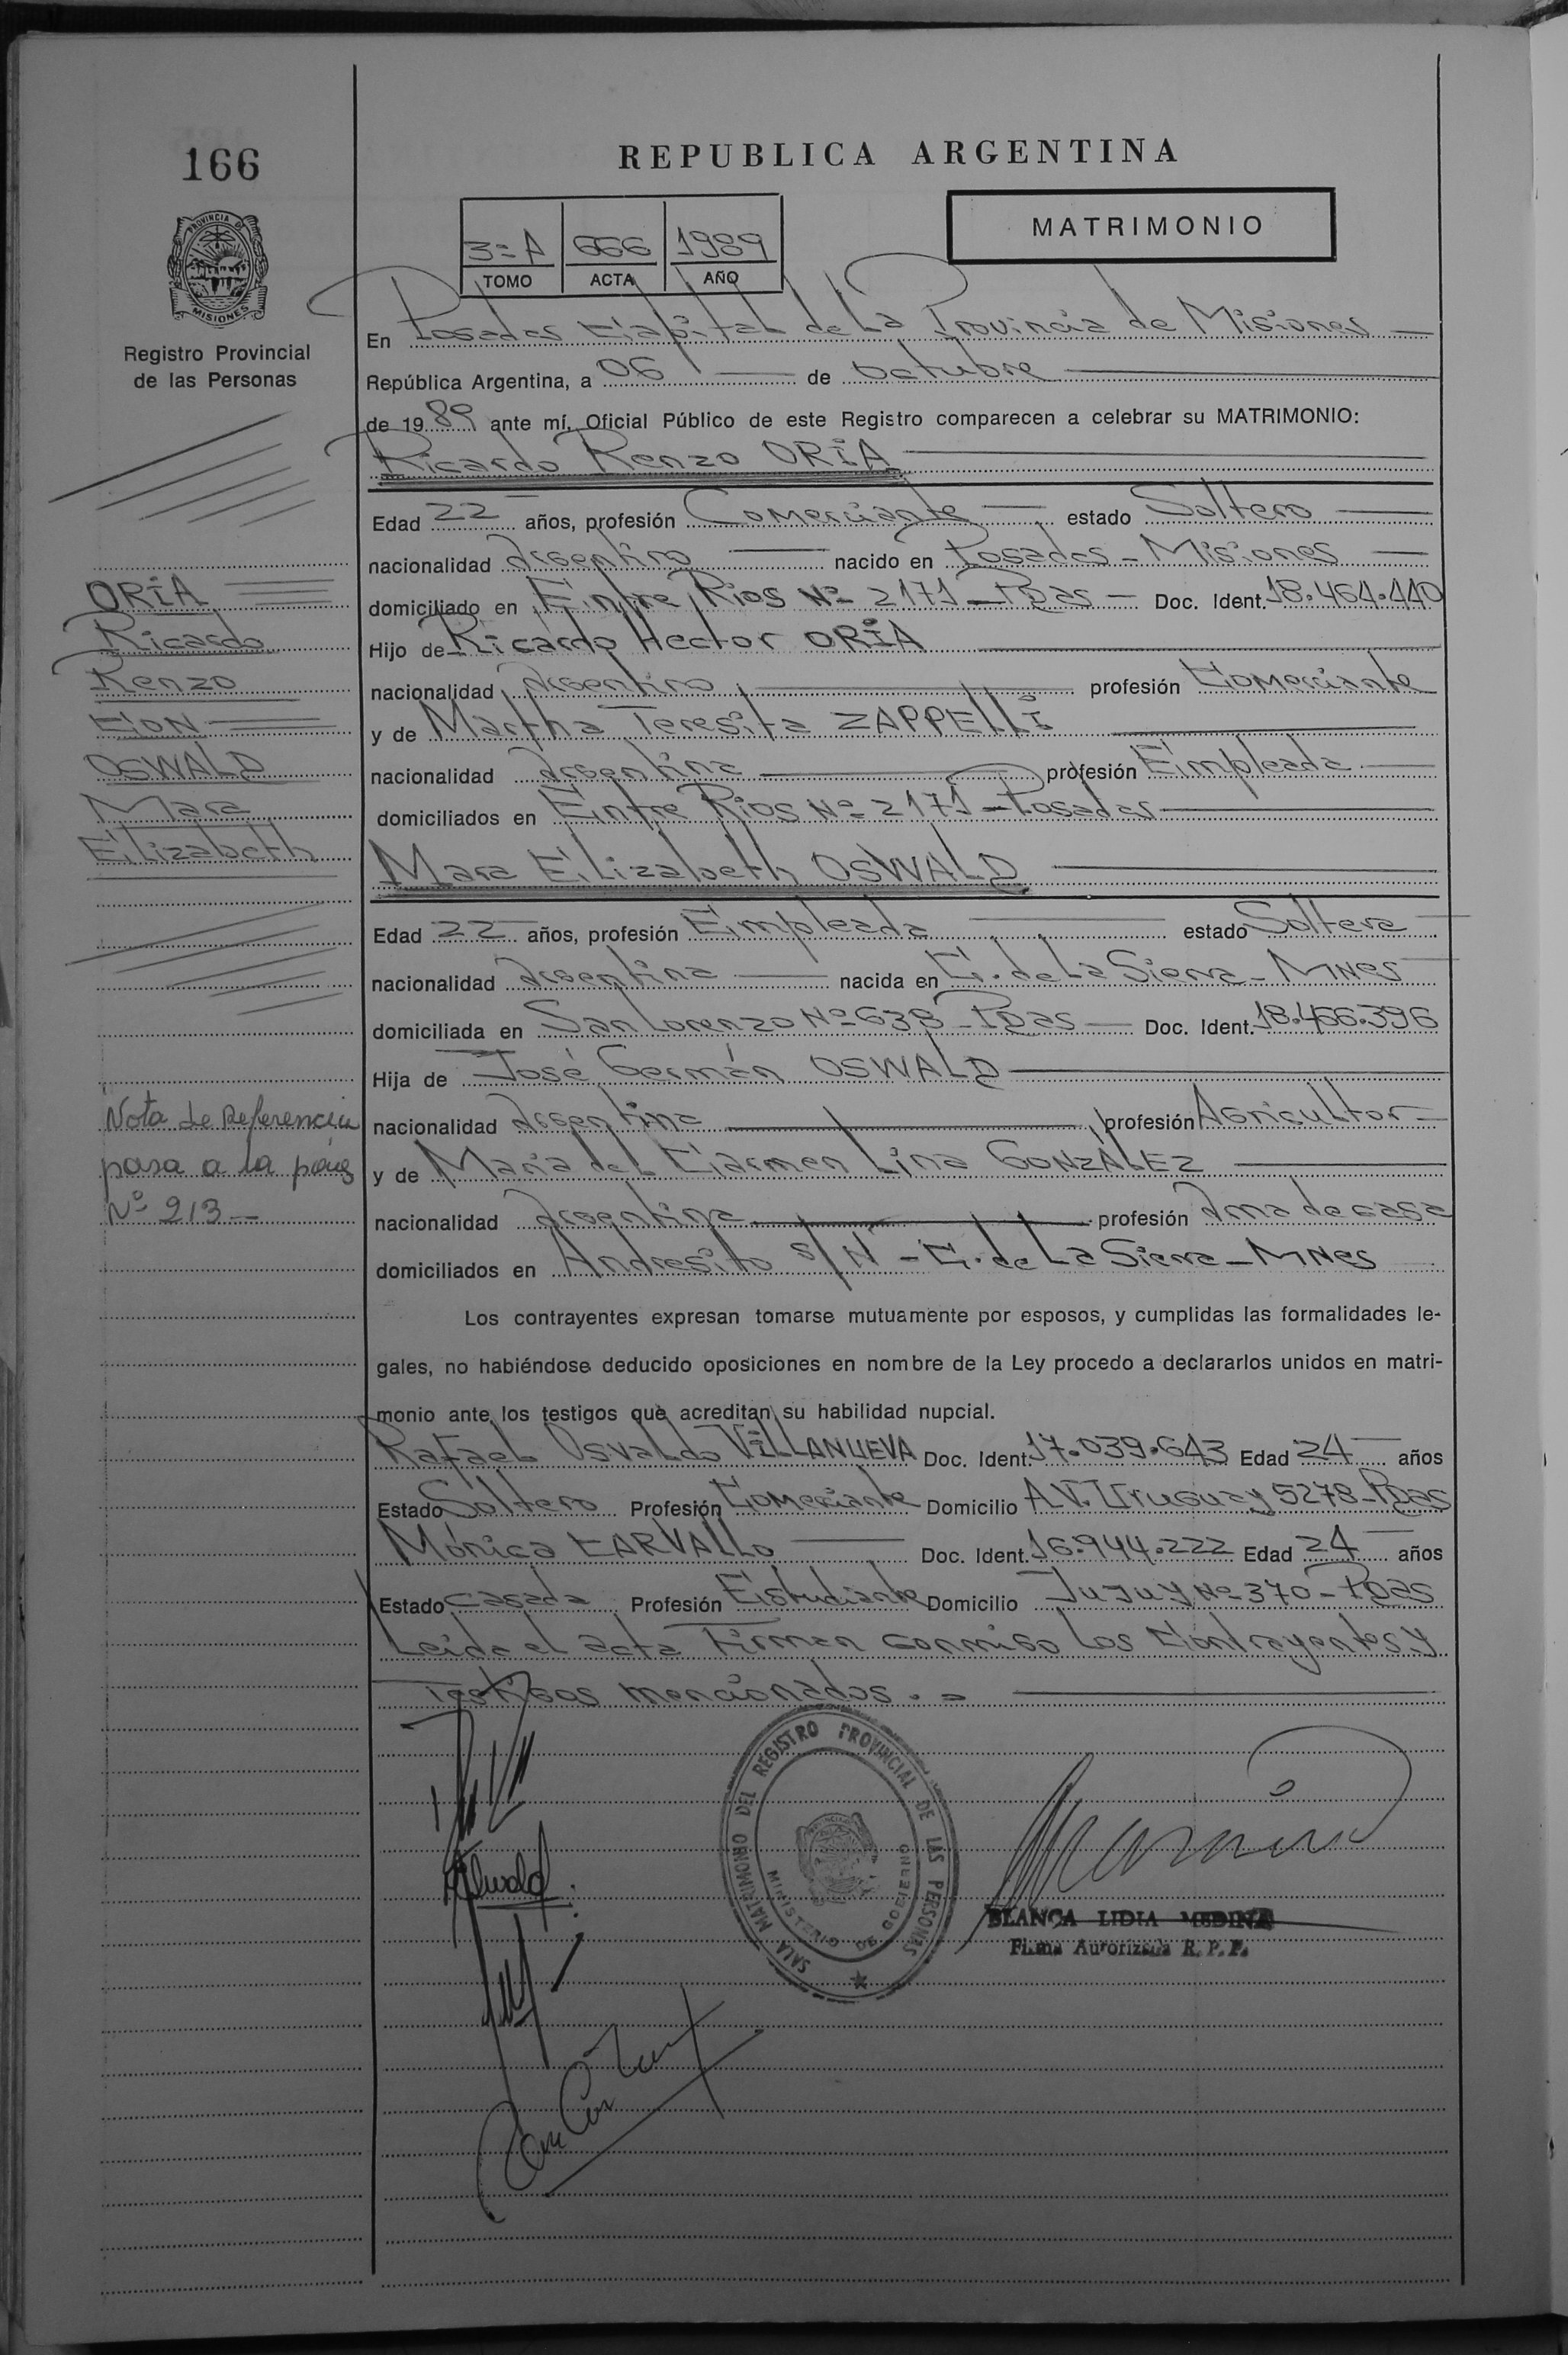 166
REPUBLICA ARGENTINA
PROVINCIA DE
MISIONES
Registro Provincial
de las Personas
3=A 666 1989
TOMO ACTA AÑO
MATRIMONIO
En Posadas Capital de La Provincia de Misiones
República Argentina, a 06 de octubre
de 1989 ante mí, Oficial Público de este Registro comparecen a celebrar su MATRIMONIO:
Ricardo Renzo ORIA
Edad 22 años, profesión Comerciante estado Soltero
nacionalidad Argentino nacido en Posadas - Misiones
domiciliado en Entre Rios Nº 2171 - Pdas - Doc. Ident. 18.464.440
Hijo de Ricardo Hector ORIA
nacionalidad Argentino profesión Comerciante
y de Martha Teresita ZAPPELLI
nacionalidad Argentina profesión Empleada
domiciliados en Entre Rios Nº 2171 - Posadas
Mara Elizabeth OSWALD
Edad 22 años, profesión Empleada estado Soltera
nacionalidad Argentina nacida en C. de La Sierra - Mnes
domiciliada en San Lorenzo Nº 638 - Pdas - Doc. Ident. 18.466.396
Hija de José Germán OSWALD
nacionalidad Argentina profesión Agricultor
y de Maria del Carmen Lina GONZÁLEZ
nacionalidad Argentina profesión Ama de casa
domiciliados en Andresito s/N - C. de La Sierra - Mnes
Los contrayentes expresan tomarse mutuamente por esposos, y cumplidas las formalidades le-
gales, no habiéndose deducido oposiciones en nombre de la Ley procedo a declararlos unidos en matri-
monio ante los testigos que acreditan su habilidad nupcial.
Rafael Osvaldo VILLANUEVA Doc. Ident. 17.039.643 Edad 24 años
Estado Soltero Profesión Comerciante Domicilio AV. Uruguay 5278 - Pdas
Mónica CARVALLO Doc. Ident. 16.944.222 Edad 24 años
Estado casada Profesión Estudiante Domicilio Jujuy Nº 370 - Pdas
Leída el acta Firman conmigo Los Contrayentes y
Testigos mencionados. =
ORIA
Ricardo
Renzo
CON
OSWALD
Mara
Elizabeth
Nota de Referencia
pasa a la pág
Nº 213 -
SALA MATRIMONIO DEL REGISTRO PROVINCIAL DE LAS PERSONAS
MINISTERIO DE GOBIERNO
BLANCA LIDIA MEDINA
Firma Autorizada R. P. P.